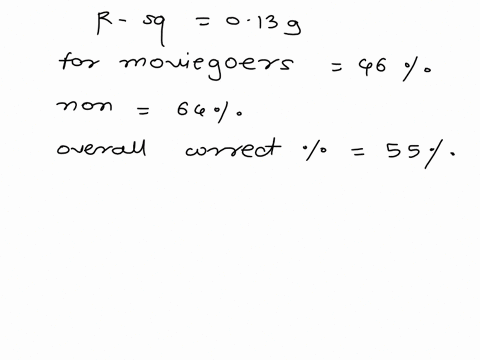 R- sq = 0.139
for moviegoers = 46 %.
non = 64%.
overall correct % = 55%.